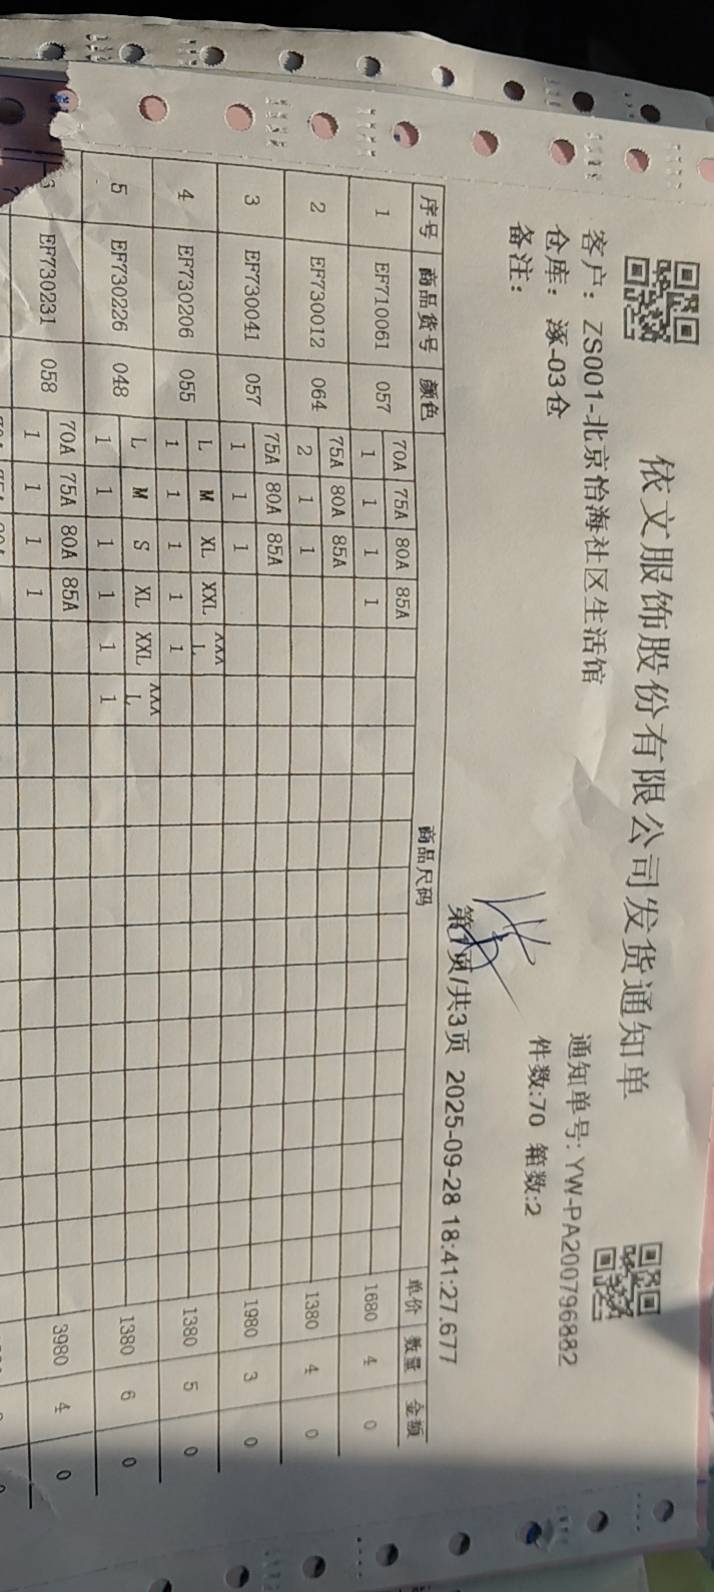 依文服饰股份有限公司发货通知单
客户：ZS001-北京怡海社区生活馆 通知单号: YW-PA200796882
仓库：涿-03仓 件数:70 箱数:2
备注：
第1页/共3页 2025-09-28 18:41:27.677
序号 商品货号 颜色 商品尺码 单价 数量 金额
70A 75A 80A 85A
1 EF710061 057 1 1 1 1 1680 4 0
75A 80A 85A
2 EF730012 064 2 1 1 1380 4 0
75A 80A 85A
3 EF730041 057 1 1 1 1980 3 0
L M XL XXL XXXL
4 EF730206 055 1 1 1 1 1 1380 5 0
L M S XL XXL XXXL
5 EF730226 048 1 1 1 1 1 1 1380 6 0
70A 75A 80A 85A
6 EF730231 058 1 1 1 1 3980 4 0